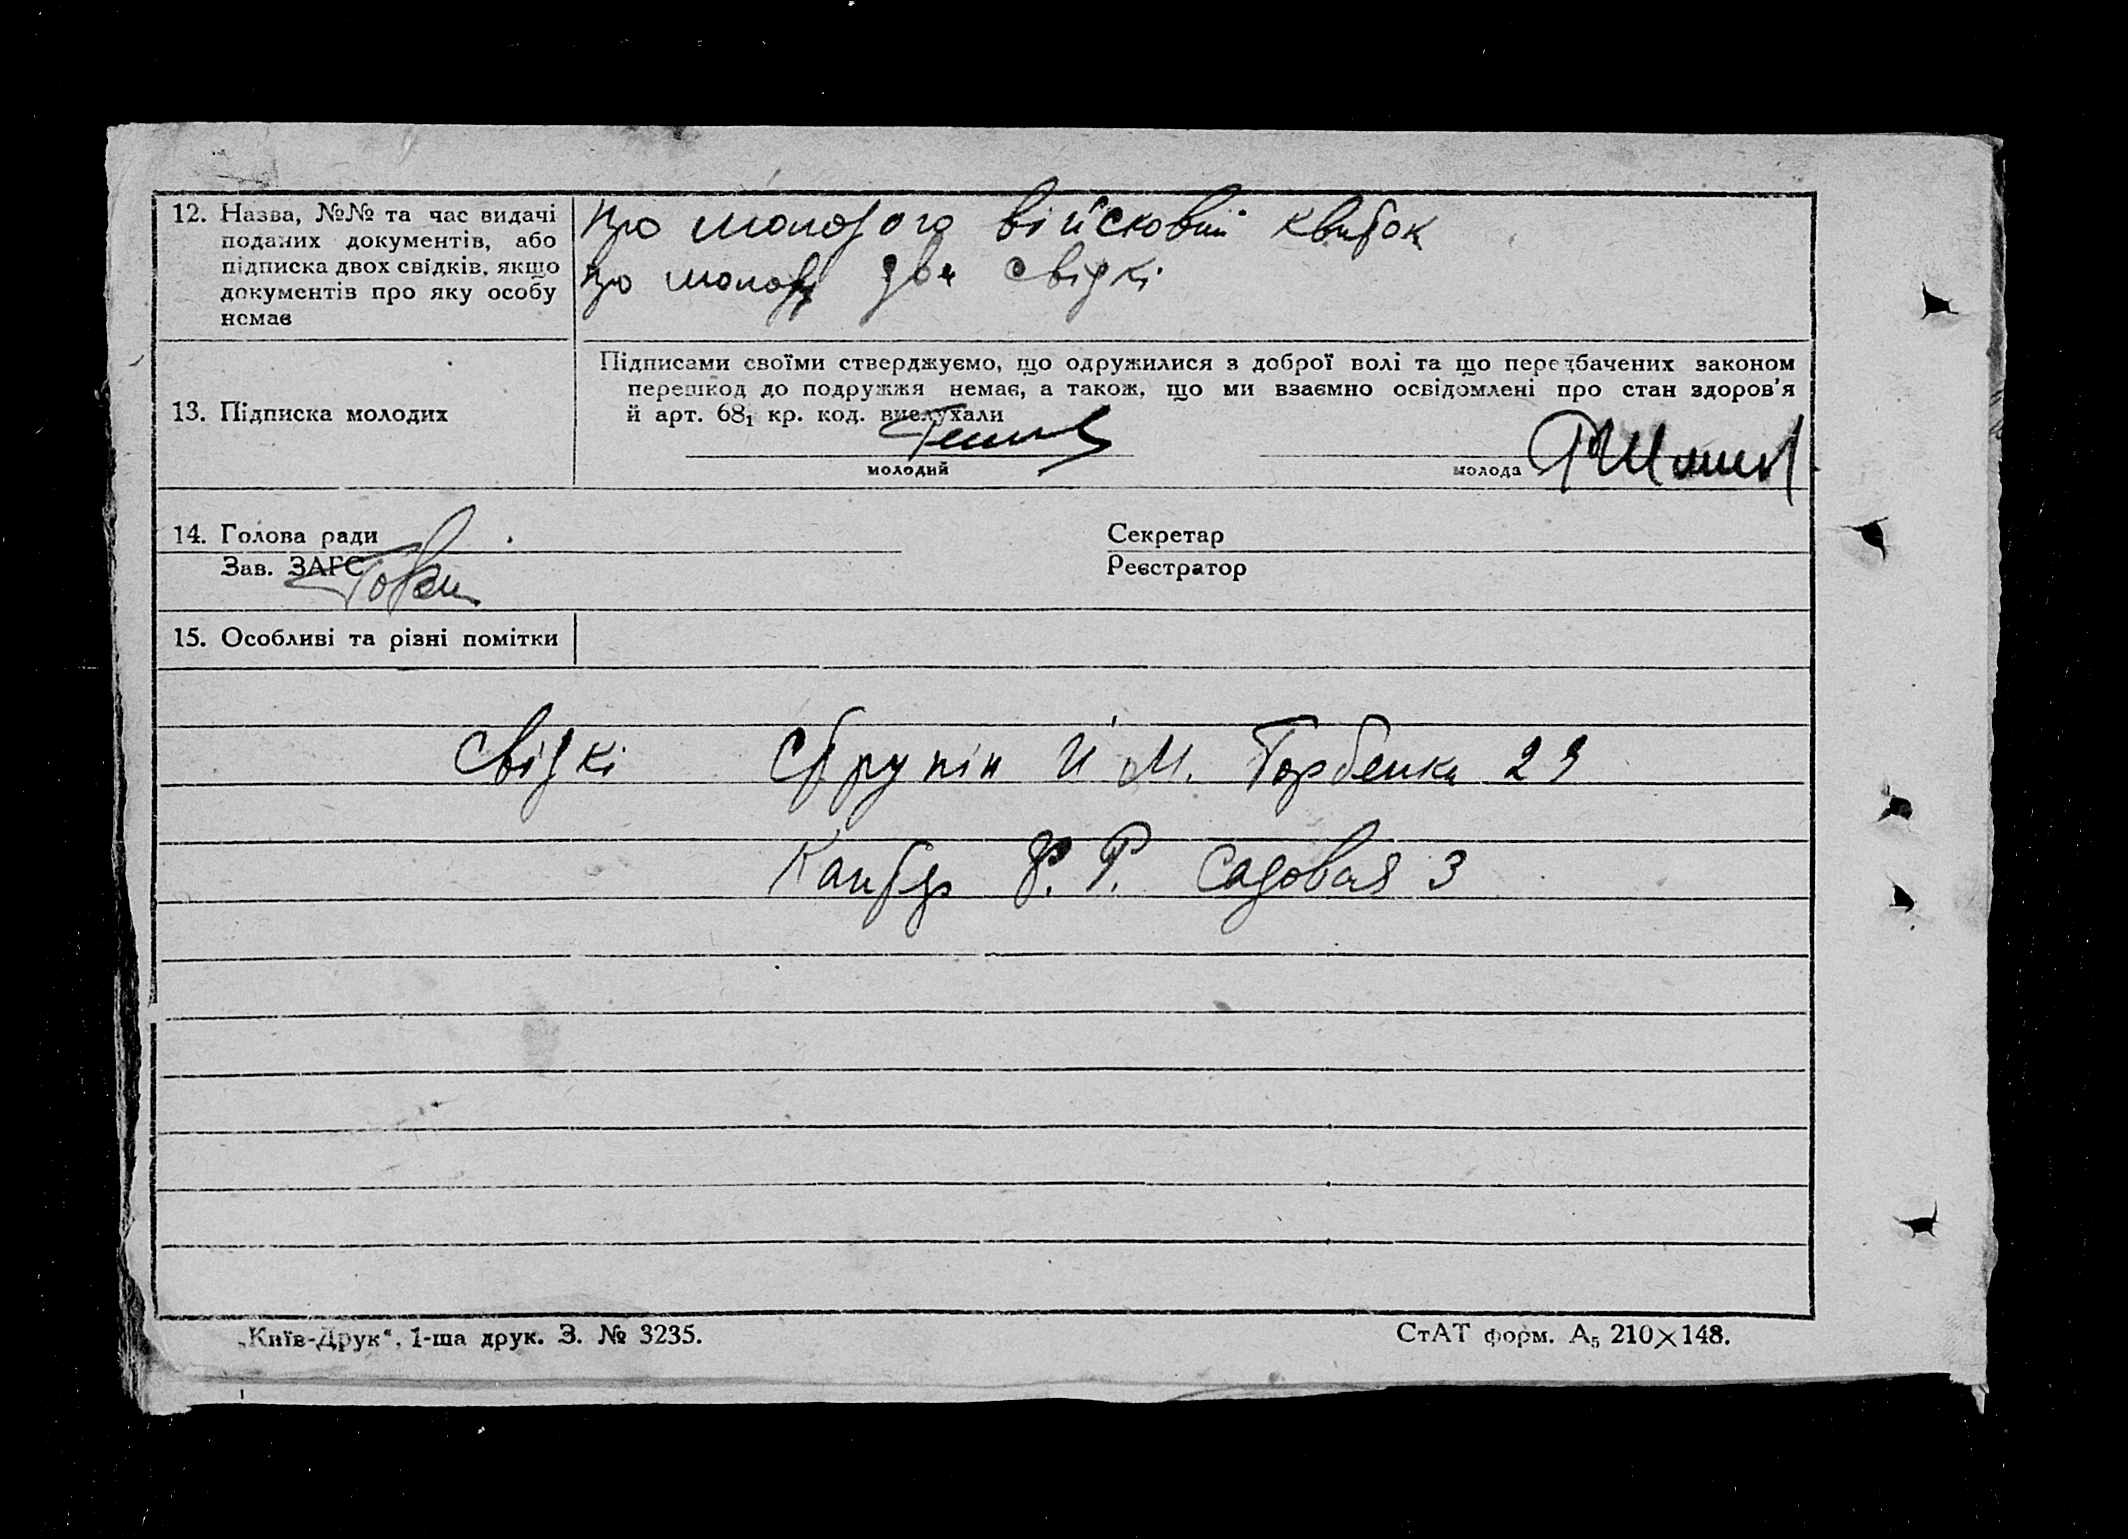 12. Назва, №№ та час видачі
поданих документів, або
підписка двох свідків, якщо
документів про яку особу
немає
про молодого військовий квиток
про молоду два свідкі
13. Підписка молодих
Підписами своїми стверджуємо, що одружилися з доброї волі та що передбачених законом
перешкод до подружжя немає, а також, що ми взаємно освідомлені про стан здоров'я
й арт. 68₁ кр. код. вислухали
молодий
молода
14. Голова ради
Секретар
Зав. ЗАГС
Реєстратор
15. Особливі та різні помітки
Свідкі Струпін И М. Горбенка 29
Р. Садовая 3
„Київ-Друк“, 1-ша друк. З. № 3235.
СтАТ форм. А₅ 210×148.